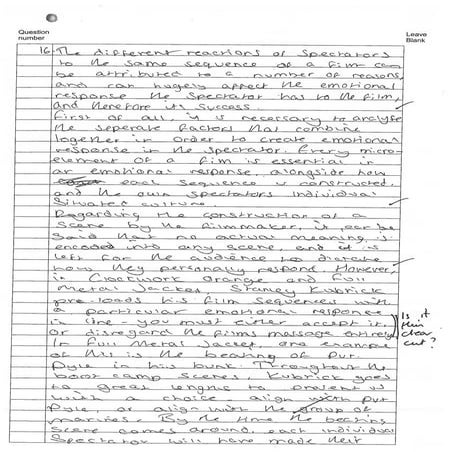 Question
number
Leave
Blank
16 The different reactions of spectators
to the same sequence of a film can
be attributed to a number of reasons,
and can hugely affect the emotional
response the spectator has to the film,
and therefore its success.
First of all, it is necessary to analyse
the seperate factors that combine
together in order to create emotional
response in the spectator. Every micro-
element of a film is essential in
an emotional response, alongside how
each sequence is constructed,
and the own spectators individual
situated culture.
Regarding the construction of a
scene by the filmmaker, it can be
said that no actual meaning is
encoded into any scene, and it is
left for the audience to dictate
how they personally respond. However,
in Clockwork Orange and Full
Metal Jacket, Stanley Kubrick
pre-loads his film sequences with
a particular emotional response
in line - you must either accept it,
or disregard the films message entirely.
Is it
this
clear
cut?
In Full Metal Jacket, one example
of this is the beating of Pvt.
Pyle in his bunk. Throughout the
boot camp scenes, Kubrick goes
to great lengths to present us
with a choice, align with Pvt
Pyle or align with the group of
marines. By the time the beating
scene comes around, each individual
spectator will have made their